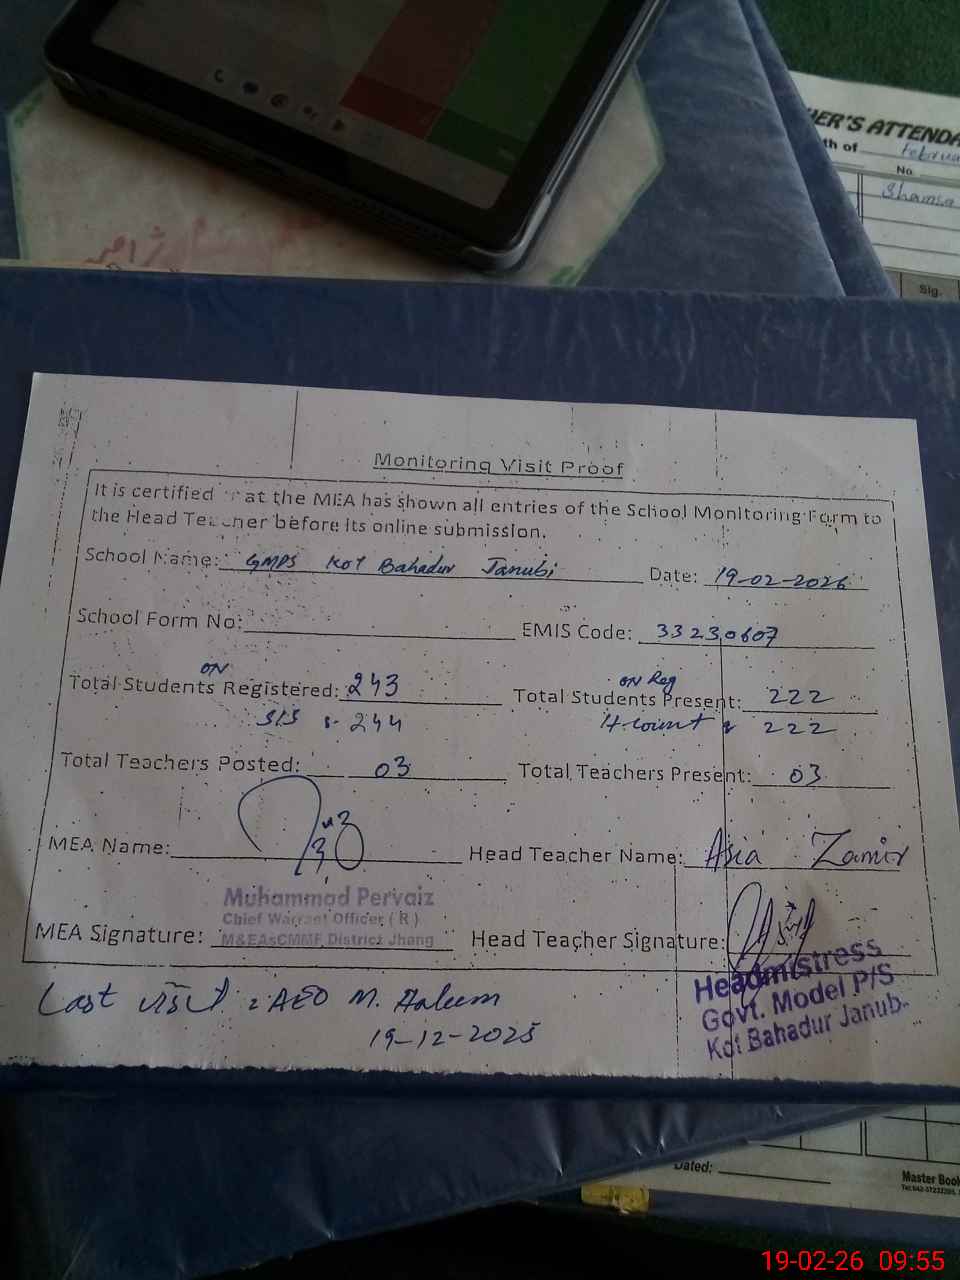 HER'S ATTENDA
th of Februa
No.
Shamsa
Sig.
Monitoring Visit Proof
It is certified that the MEA has shown all entries of the School Monitoring Form to
the Head Teacher before its online submission.
School Name: GMPS Kot Bahadur Janubi Date: 19-02-2026
School Form No: EMIS Code: 33230607
ON ON Reg
Total Students Registered: 243 Total Students Present: 222
SIS : 244 H-count : 222
Total Teachers Posted: 03 Total Teachers Present: 03
MEA Name: Head Teacher Name: Asia Zamir
Muhammad Pervaiz
Chief Warrant Officer ( R )
MEA Signature: M&EAsCMMF District Jhang Head Teacher Signature:
Headmistress
Govt. Model P/S
Kot Bahadur Janub.
Last visit : AEO M. Haleem
19-12-2025
Dated:
Master Book
19-02-26 09:55